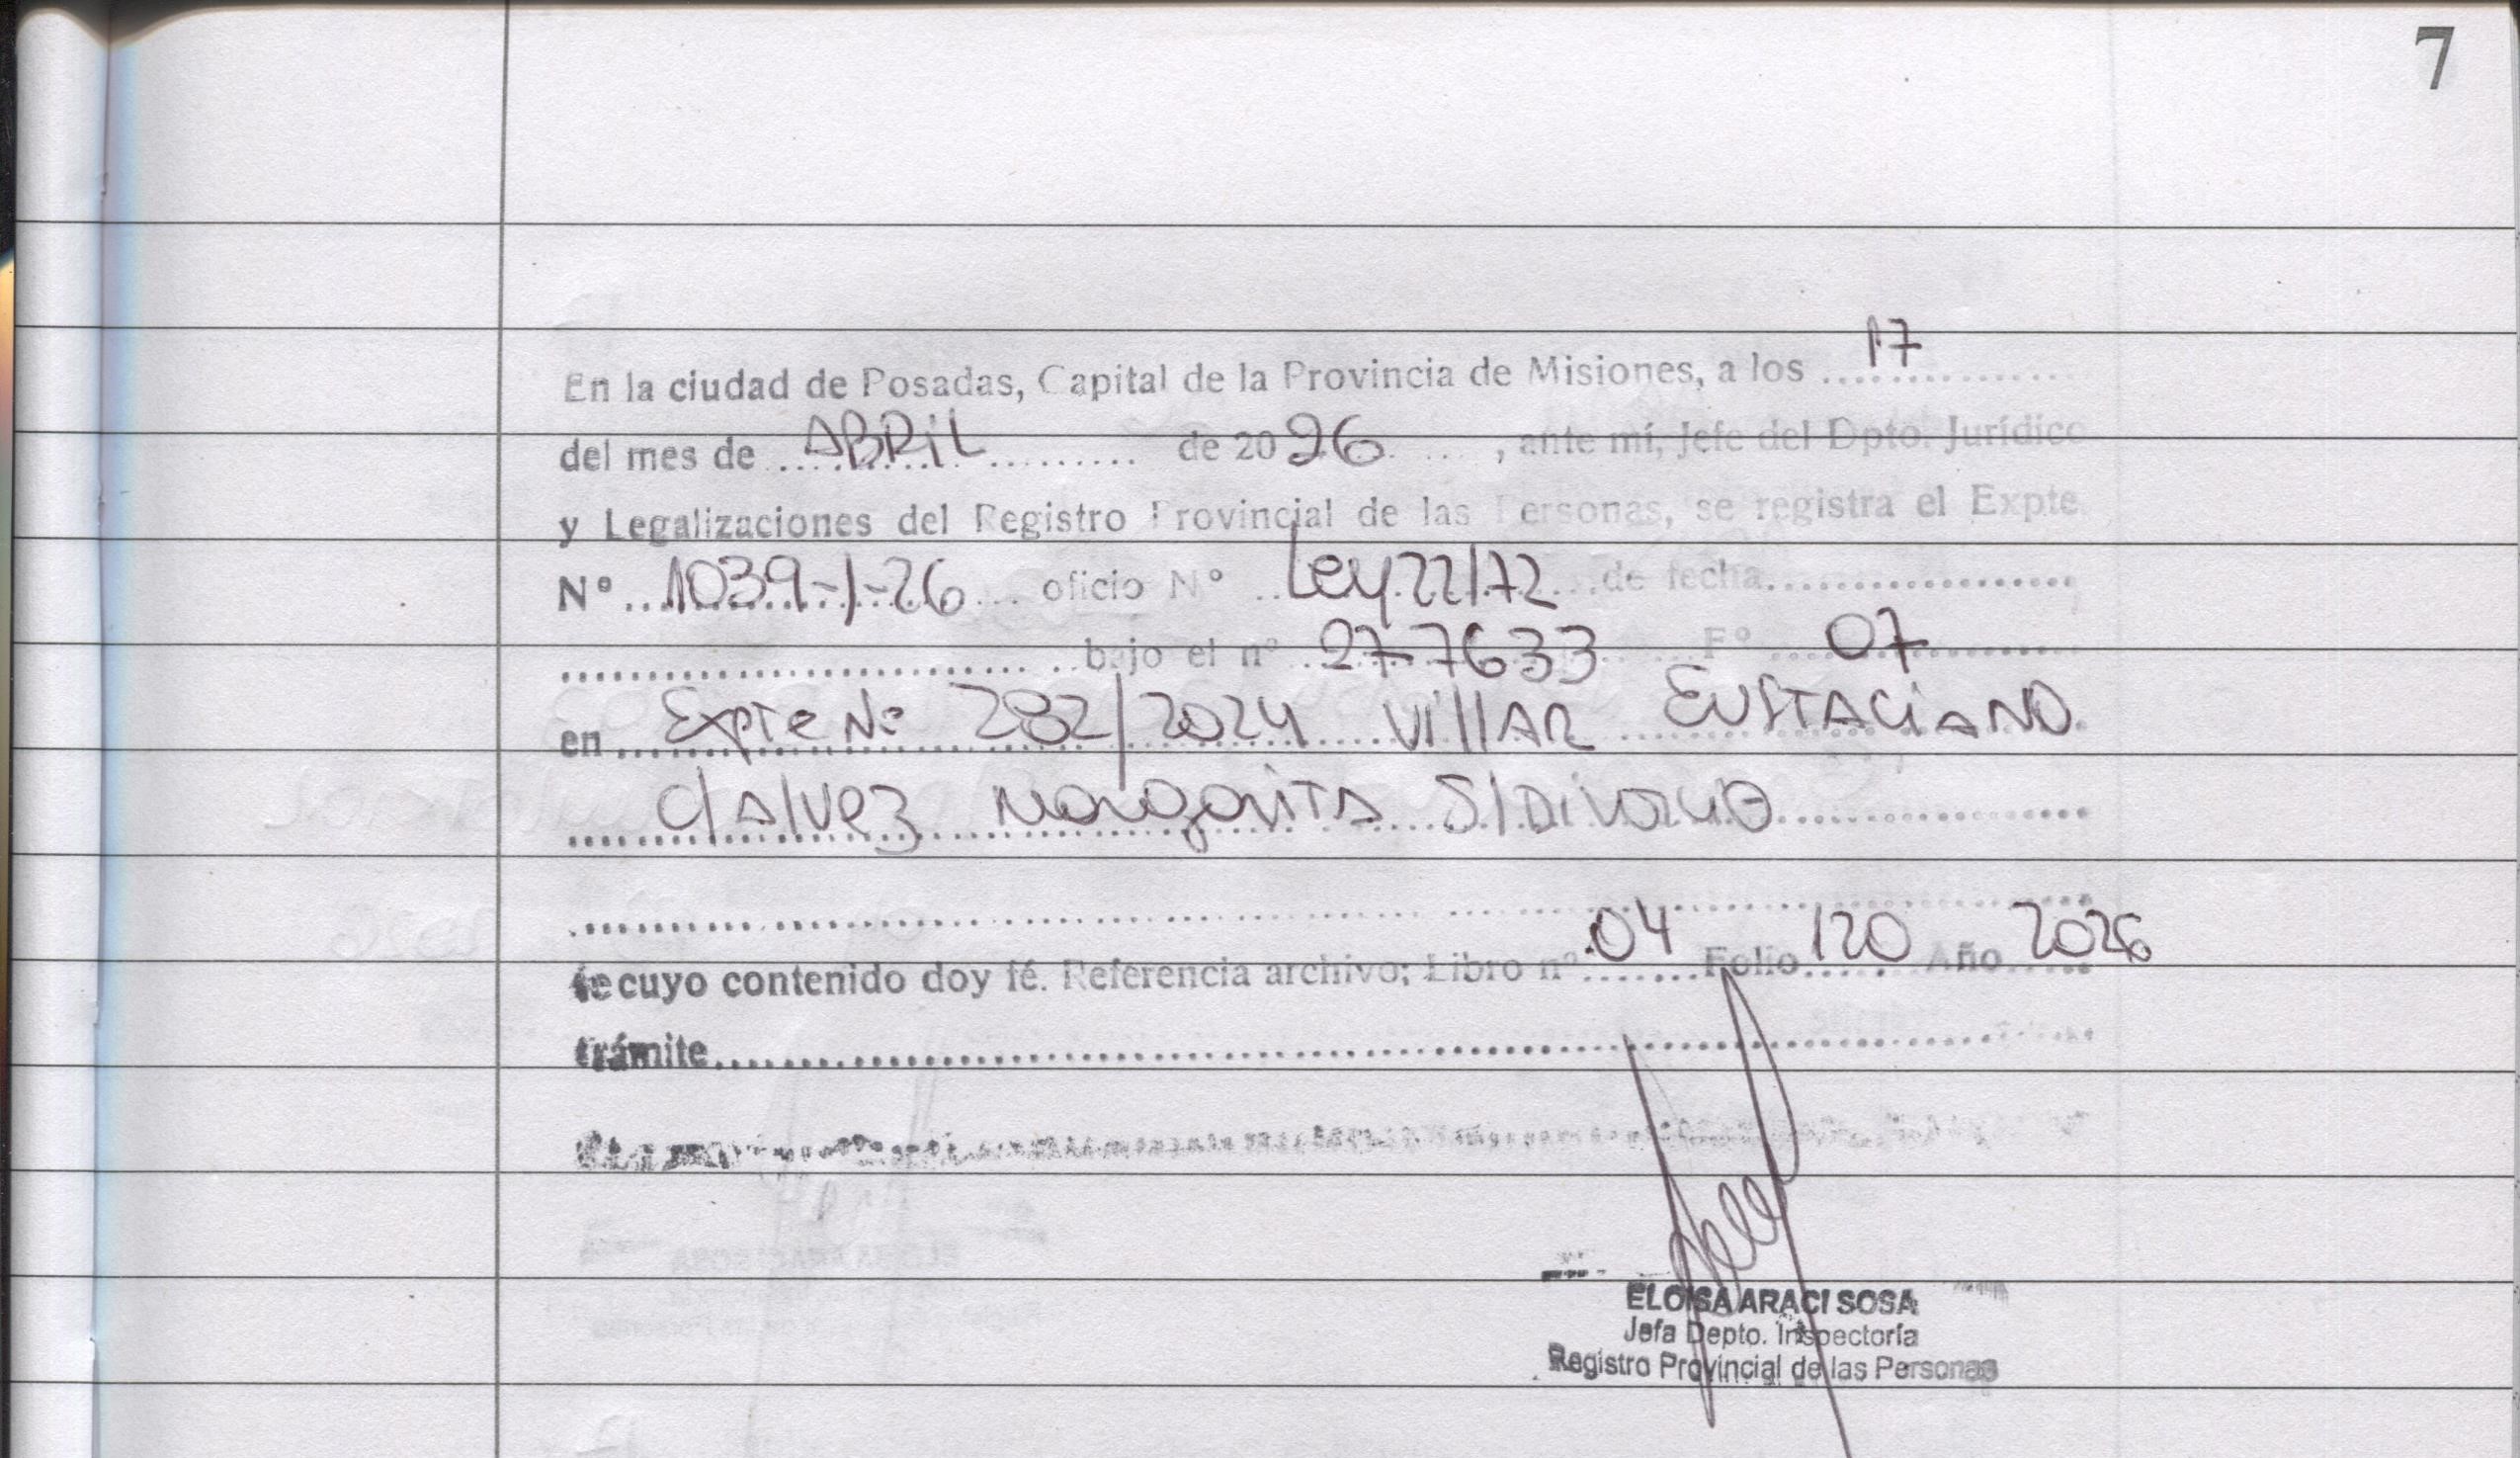 7
En la ciudad de Posadas, Capital de la Provincia de Misiones, a los 17
del mes de ABRIL de 2026, ante mí, Jefe del Dpto. Jurídico
y Legalizaciones del Registro Provincial de las Personas, se registra el Expte.
N° 1039-1-26 oficio N° Ley 22172 de fecha
bajo el n° 277633 F° 07
en Expte No 282/2024 VillAR EUSTACiANO
C/ Alvez Margarita S/ Divorcio
de cuyo contenido doy fé. Referencia archivo; Libro n° 04 Folio 120 Año 2026
trámite
ELOISA ARACI SOSA
Jefa Depto. Inspectoría
Registro Provincial de las Personas